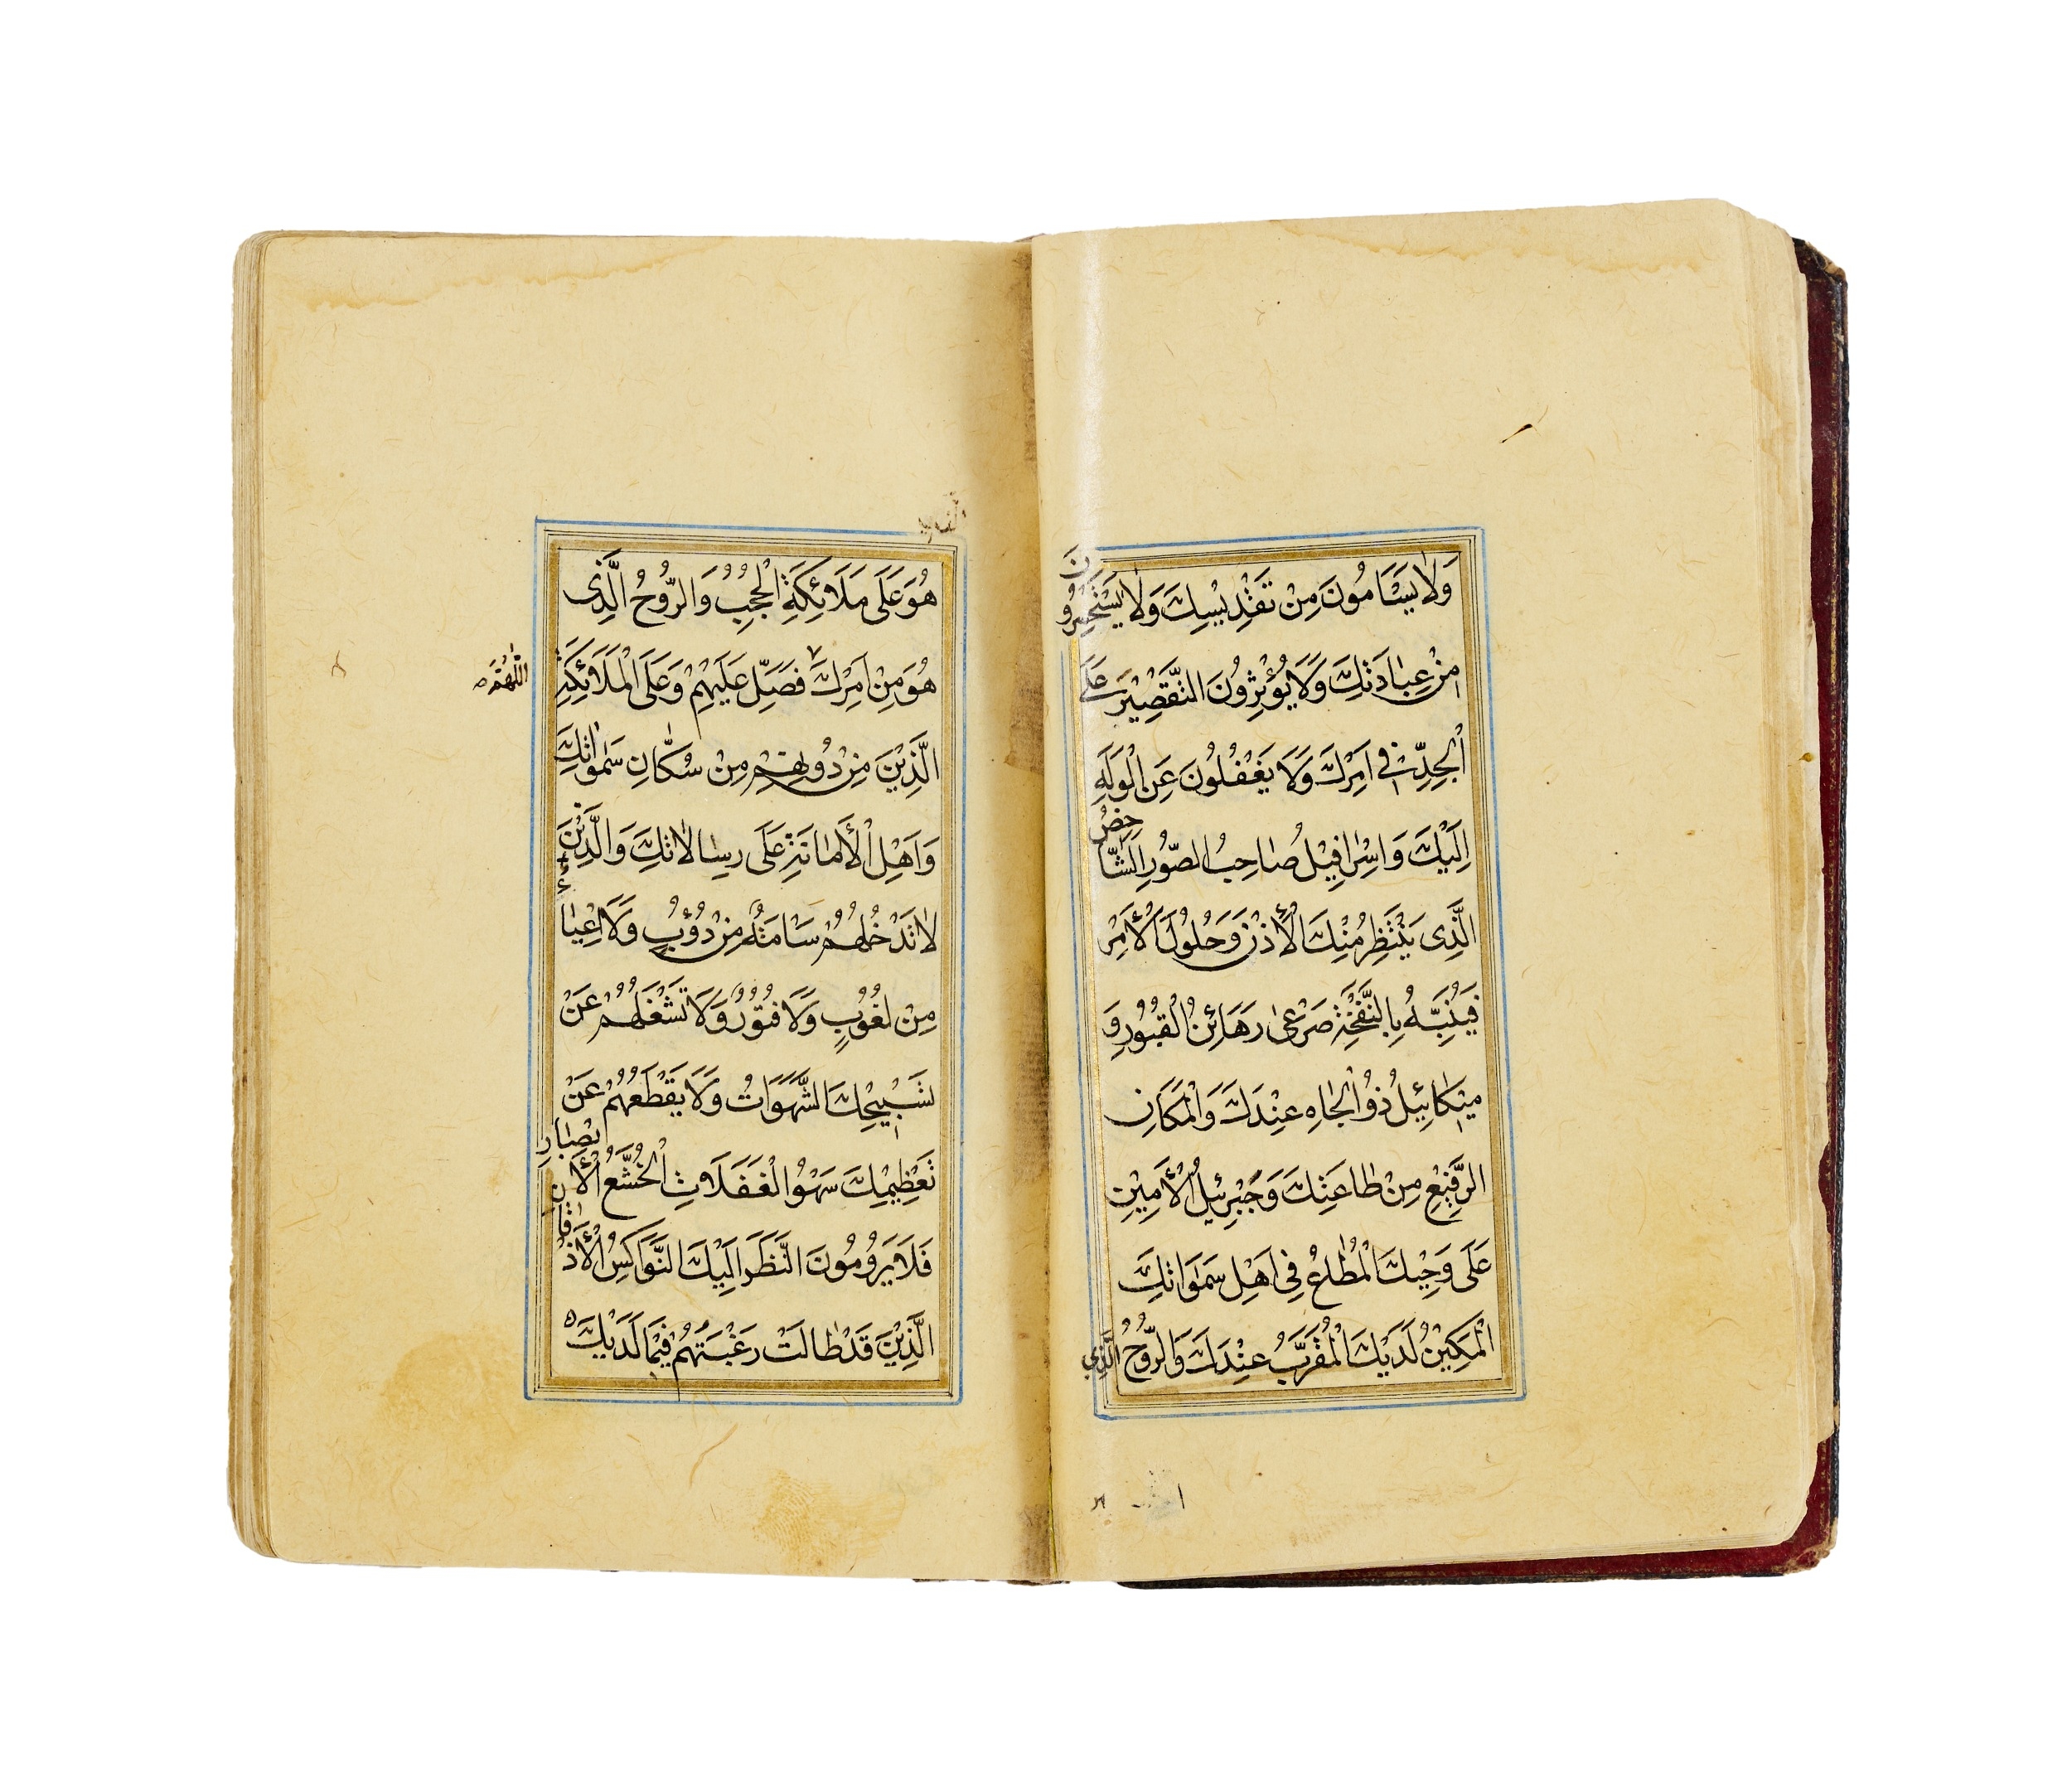 وَلَا يَسْأَمُونَ مِنْ تَقْدِيسِكَ وَلَا يَسْتَحْسِرُونَ
مِنْ عِبَادَتِكَ وَلَا يُؤْثِرُونَ التَّقْصِيرَ عَلَى
الْجِدِّ فِي أَمْرِكَ وَلَا يَغْفُلُونَ عَنِ الْوَلَهِ
إِلَيْكَ وَإِسْرَافِيلُ صَاحِبُ الصُّورِ الشَّاخِصُ
الَّذِي يَنْتَظِرُ مِنْكَ الْأِذْنَ وَحُلُولَ الْأَمْرِ
فَيُنَبِّهُ بِالنَّفْخَةِ صَرْعَى رَهَائِنِ الْقُبُورِ وَ
مِيكَائِيلُ ذُو الْجَاهِ عِنْدَكَ وَالْمَكَانِ
الرَّفِيعِ مِنْ طَاعَتِكَ وَجَبْرَئِيلُ الْأَمِينُ
عَلَى وَحْيِكَ الْمُطَاعُ فِي أَهْلِ سَمَوَاتِكَ
الْمَكِينُ لَدَيْكَ الْمُقَرَّبُ عِنْدَكَ وَالرُّوحُ الَّذِي
هُوَ عَلَى مَلَائِكَةِ الْحُجُبِ وَالرُّوحُ الَّذِي
هُوَ مِنْ أَمْرِكَ فَصَلِّ عَلَيْهِمْ وَعَلَى الْمَلَائِكَةِ
اللّٰهُمَّ
الَّذِينَ مِنْ دُونِهِمْ مِنْ سُكَّانِ سَمٰوَاتِكَ
وَأَهْلِ الْأَمَانَةِ عَلَى رِسَالَاتِكَ وَالَّذِينَ
لَا تَدْخُلُهُمْ سَأْمَةٌ مِنْ دُؤُبٍ وَلَا إِعْيَاءٌ
مِنْ لُغُوبٍ وَلَا فُتُورٌ وَلَا تَشْغَلُهُمْ عَنْ
تَسْبِيحِكَ الشَّهَوَاتُ وَلَا يَقْطَعُهُمْ عَنْ
تَعْظِيمِكَ سَهْوُ الْغَفَلَاتِ الْخُشَّعُ الْأَبْصَارِ
فَلَا يَرُومُونَ النَّظَرَ إِلَيْكَ النَّوَاكِسُ الْأَذْقَانِ
الَّذِينَ قَدْ طَالَتْ رَغْبَتُهُمْ فِيمَا لَدَيْكَ